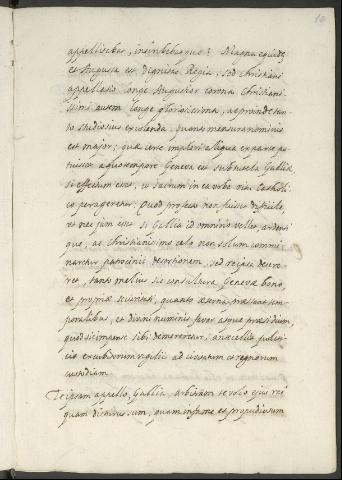 10
appellitabas, inquiebasque? Magna equidẽ
et Augusta est dignitas Regia, sed Christiani
appellatio longe Augustior corona Christianis-
simi autem longe gloriosissima, ac proinde tan-
to studiosius excolenda, quanto mensura nominis
est major; quæ certe impleri aliqua ex parte po-
tuisset a quo tempore Geneva est sub tutela Galliæ,
si effectum esset, ut sacrum in ea urbe ritu Catholi-
co perageretur; Quod profecto non fuisset difficile,
et nec jam esset si Gallia id omnino vellet, ardenti-
que, ac Christianissimo zelo non solum commi-
naretur patrocinii desertionem, sed reipsa desere-
ret, tanto melius sic consultura Genevæ bono,
et propriæ securitati, quanto æterna præstant tem-
poralibus, et divini numinis favor atque præsidium,
quod sic impense sibi demereretur, antecellit politi-
cis excubiarum vigiliis ad civitatum et regnorum
custodiam.
Te ipsam appello, Gallia, arbitram te volo ejus rei
quam dicturus sum, quam insigne et præjudiciosum